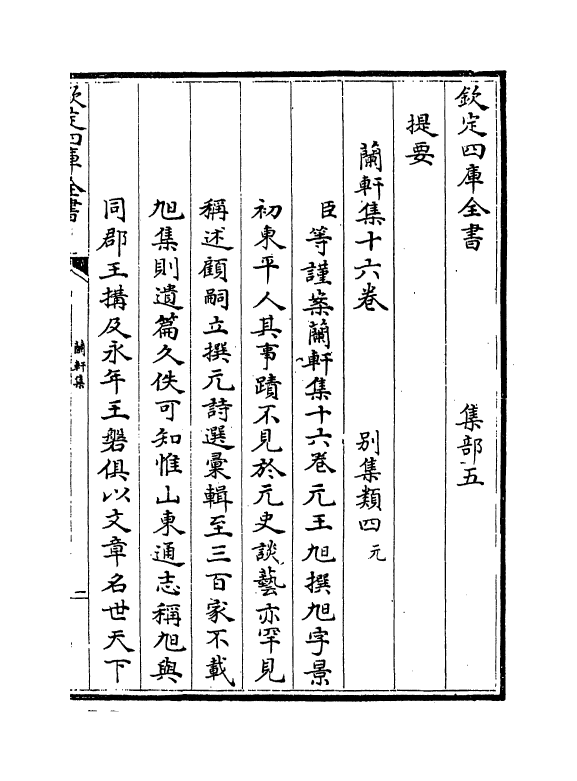 欽定四庫全書　集部五
提要
蘭軒集十六卷　別集類四　元
臣等謹案蘭軒集十六卷元王旭撰旭字景
初東平人其事蹟不見於元史談藝亦罕見
稱述顧嗣立撰元詩選彚輯至三百家不載
旭集則遺篇久佚可知惟山東通志稱旭與
同郡王搆及永年王磐俱以文章名世天下
欽定四庫全書
蘭軒集
二